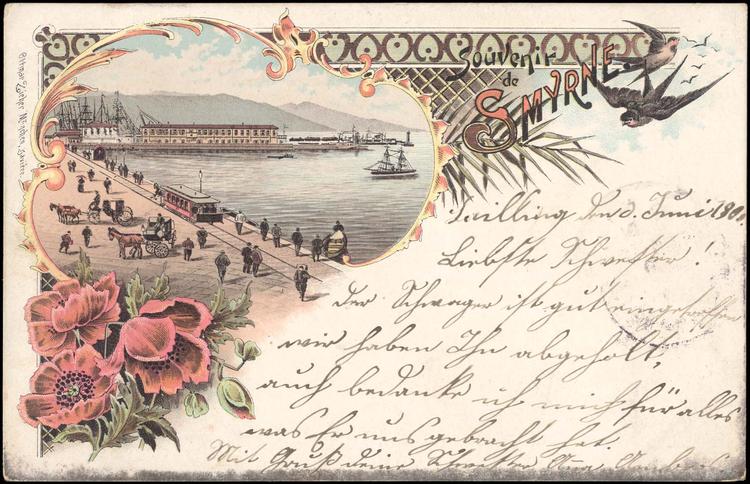 Souvenir
de
SMYRNE.
Ottmar Zieher, München,
den 3. Juni 190
Liebste Schwester!
Der Schwager ist gut eingetroffen
wir haben Ihn abgeholt,
auch bedanke ich mich für alles
was Er uns gebracht hat.
Mit Gruß deine Schwester